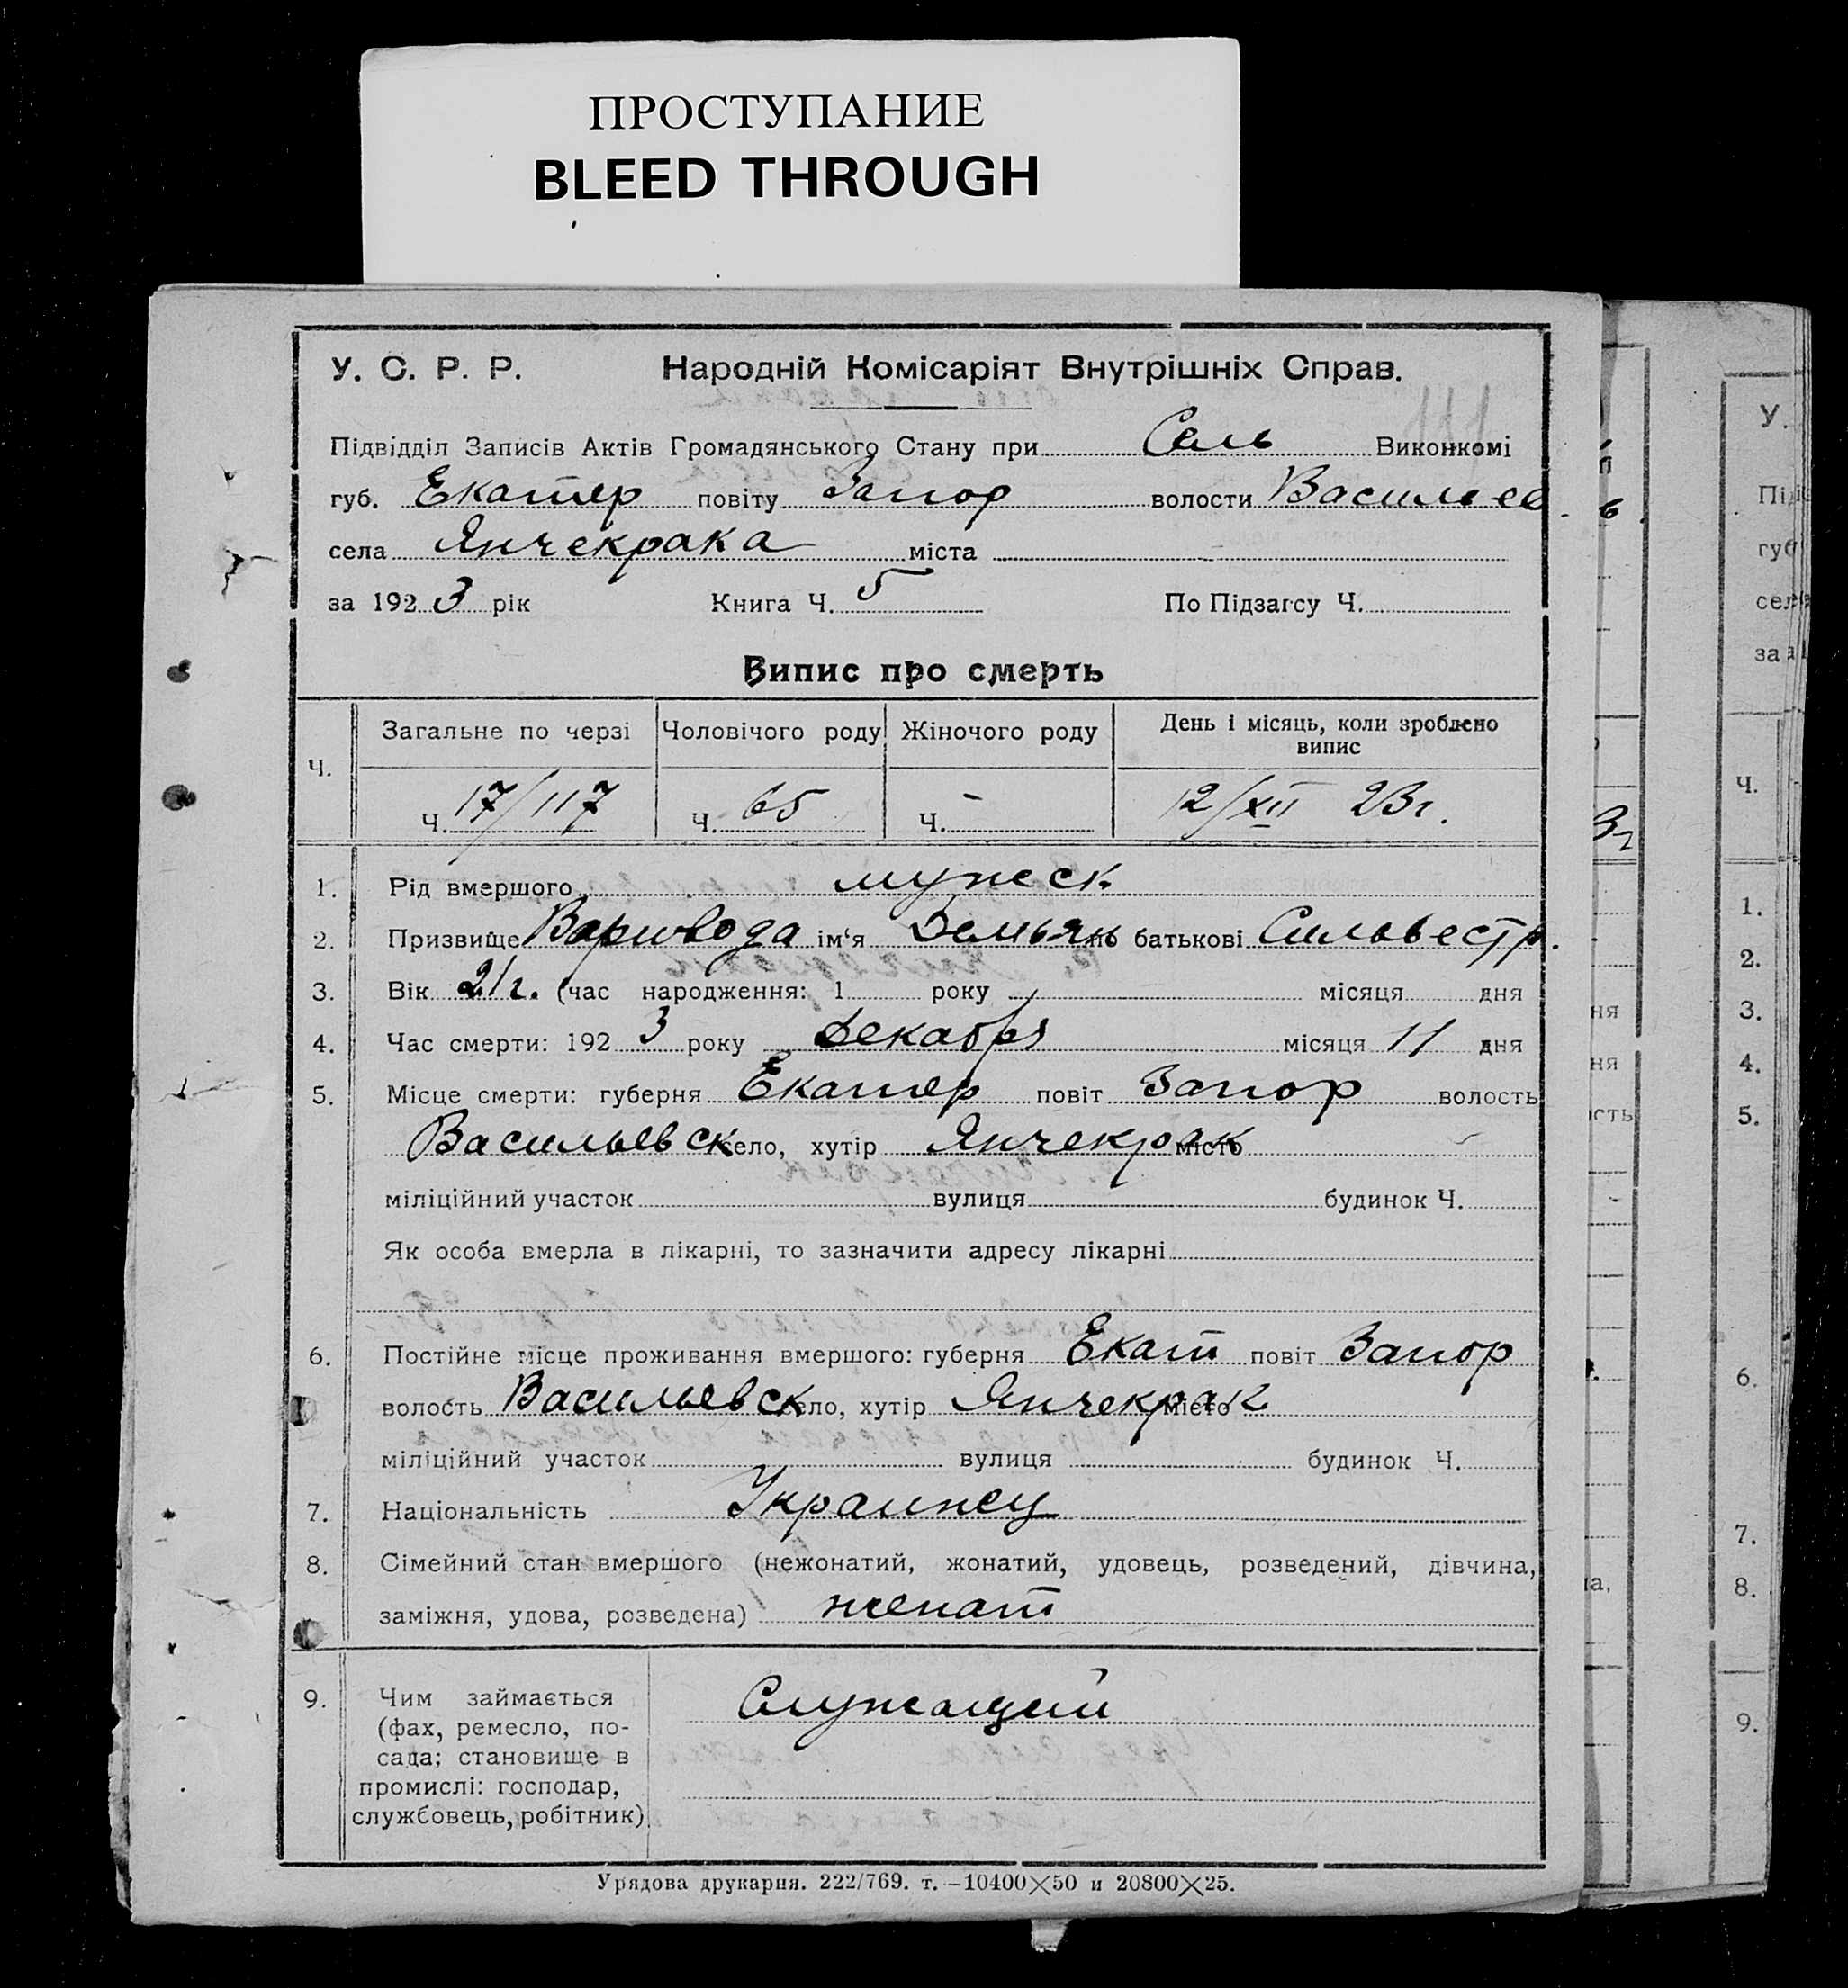 ПРОСТУПАНИЕ
BLEED THROUGH
У. С. Р. Р. Народній Комісаріят Внутрішніх Справ.
Підвідділ Записів Актів Громадянського Стану при Сель Виконкомі
губ. Екатер повіту Запор волости Васильев
села Янчекрака міста
за 1923 рік Книга Ч. 5 По Підзагсу Ч.
Випис про смерть
Ч. Загальне по черзі Чоловічого роду Жіночого роду День і місяць, коли зроблено випис
Ч. 17/117 Ч. 65 Ч. - 12/XII 23г.
1. Рід вмершого мужеск
2. Призвище Варивода ім‘я Демьян по батькові Сильвестр.
3. Вік 21г. (час народження: 1 року місяця дня
4. Час смерти: 1923 року Декабря місяця 11 дня
5. Місце смерти: губерня Екатер повіт Запор волость
Васильевск село, хутір Янчекрак місто
міліційний участок вулиця будинок Ч.
Як особа вмерла в лікарні, то зазначити адресу лікарні
6. Постійне місце проживання вмершого: губерня Екат повіт Запор
волость Васильевск село, хутір Янчекрак місто
міліційний участок вулиця будинок Ч.
7. Національність Украинец
8. Сімейний стан вмершого (нежонатий, жонатий, удовець, розведений, дівчина,
заміжня, удова, розведена) женат
9. Чим займається Служащий
(фах, ремесло, по-
сада; становище в
промислі: господар,
службовець, робітник)
Урядова друкарня. 222/769. т. —10400×50 и 20800×25.
У.
губ
за
Ч.
1.
2.
3.
4.
5.
6.
7.
8.
9.